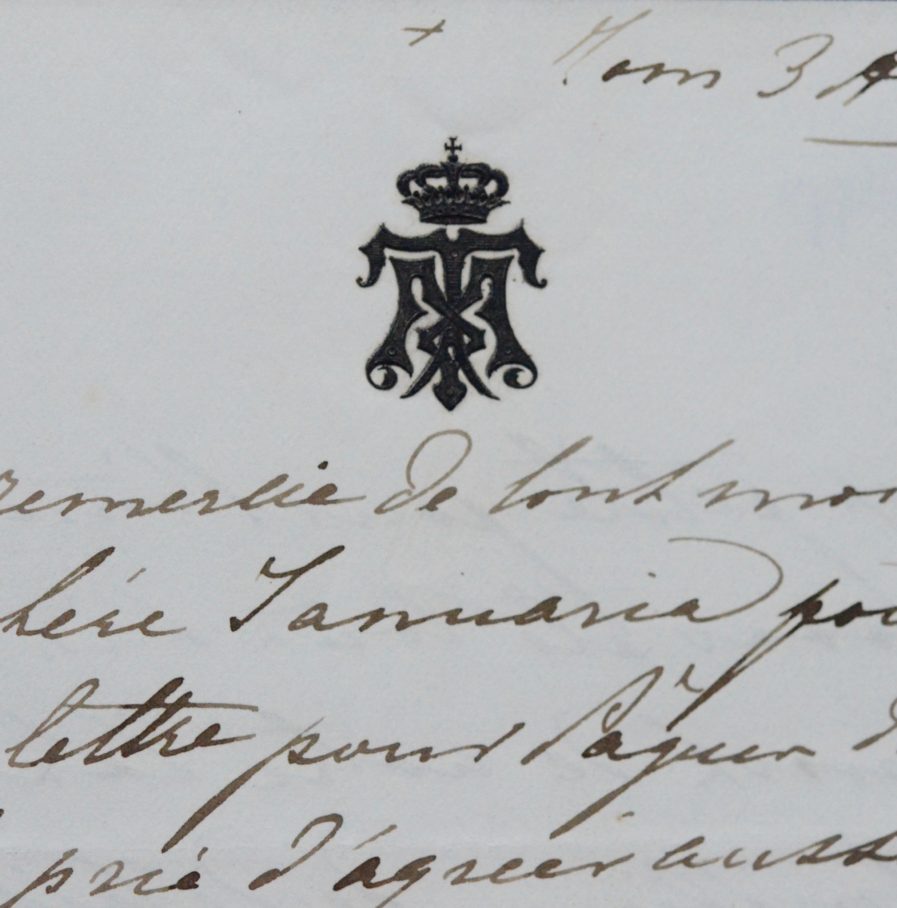 3 A
remercie de tout mon
chère Januaria pou
lettre pour Pâques d
prié d'agréer aussi